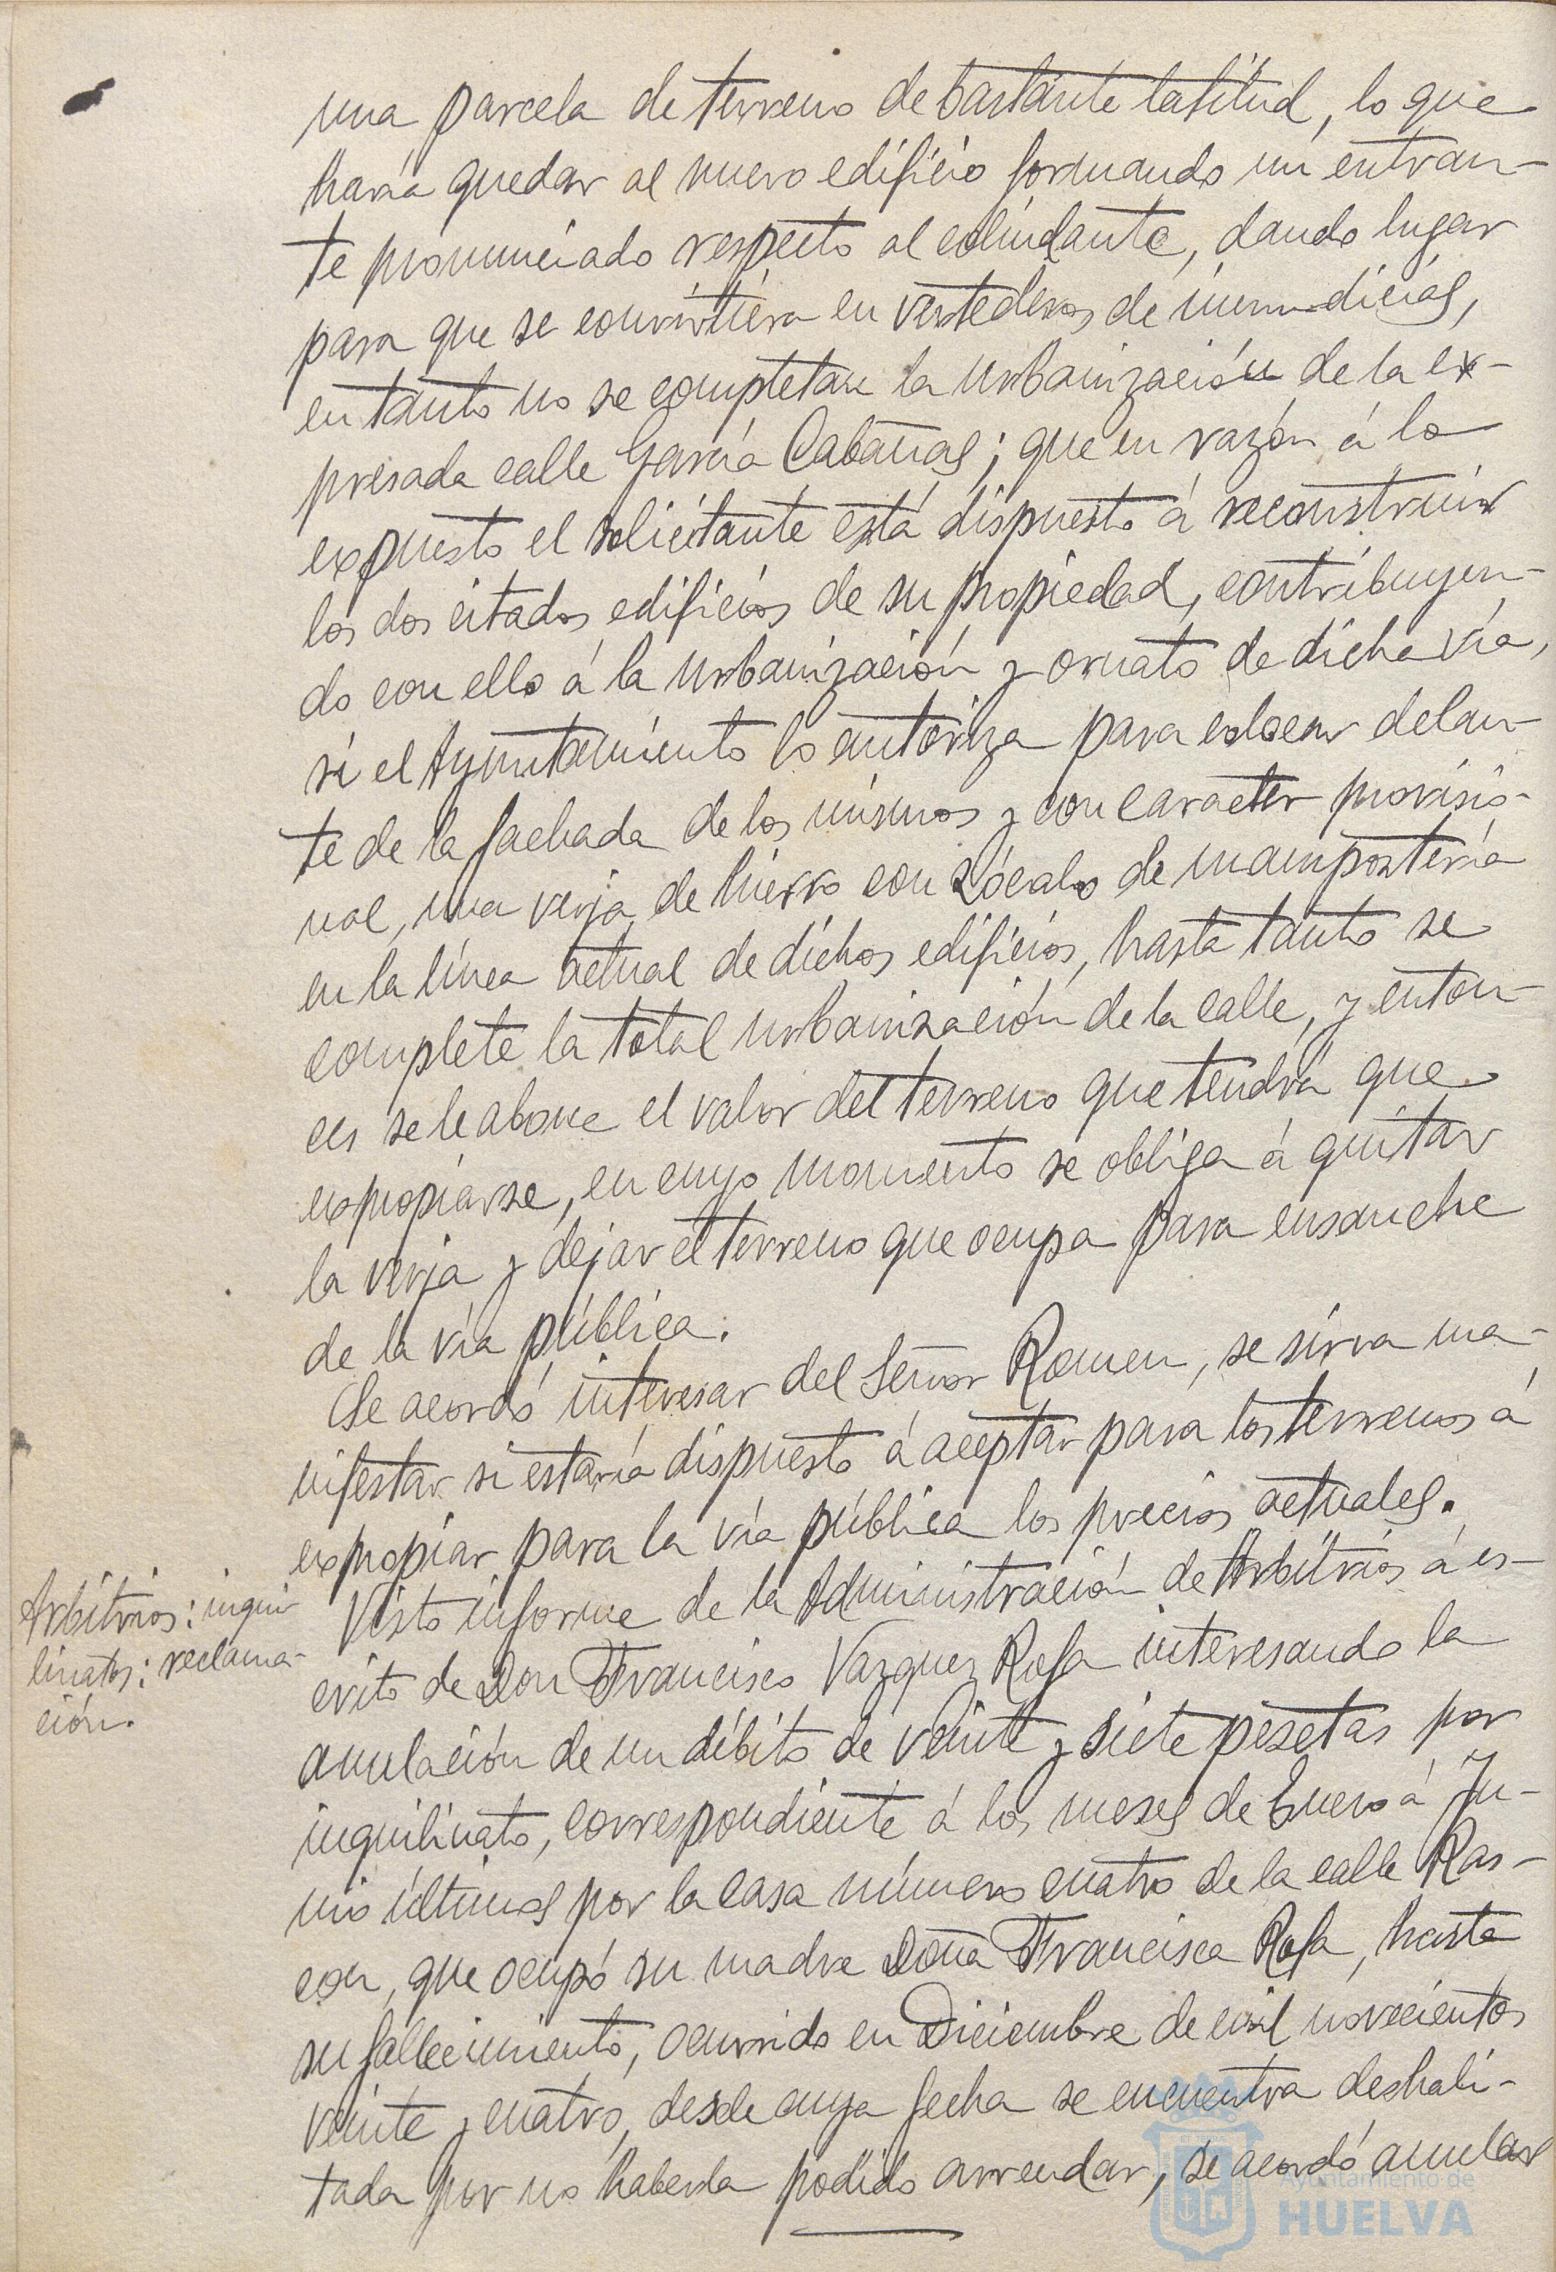 una parcela de terreno de bastante latitud, lo que
haría quedar al nuevo edificio formando un entran-
te pronunciado respecto al colindante, dando lugar
para que se convirtiera en vertederos de inmundicias,
en tanto no se completara la urbanización de la ex-
presada calle García Cabañas; que en razón á lo
expuesto el solicitante está dispuesto á reconstruir
los dos citados edificios de su propiedad, contribuyen-
do con ello á la urbanización y ornato de dicha vía,
si el Ayuntamiento lo autoriza para colocar delan-
te de la fachada de los mismos y con caracter provisio-
nal, una verja de hierro con zócalo de mampostería
en la línea actual de dichos edificios, hasta tanto se
complete la total urbanización de la calle, y enton-
ces se le abone el valor del terreno que tendrá que
expropiarse, en cuyo momento se obliga á quitar
la verja y dejar el terreno que ocupa para ensanche
de la vía pública.
Se acordó interesar del Señor Romeu, se sirva ma-
nifestar si estaría dispuesto á aceptar para los terrenos á
expropiar para la vía pública los precios actuales.
Arbitrios: inqui-
linatos: reclama-
ción.
Visto informe de la Administración de Arbitrios á es-
crito de Don Francisco Vazquez Rofa interesando la
anulación de un débito de veinte y siete pesetas por
inquilinato, correspondiente á los meses de Enero á Ju-
nio últimos por la casa número cuatro de la calle Ras-
con, que ocupó su madre Doña Francisca Rofa, hasta
su fallecimiento, ocurrido en Diciembre de mil novecientos
veinte y cuatro, desde cuya fecha se encuentra deshabi-
tada por no haberla podido arrendar, se acordó anular
Ayuntamiento de
HUELVA